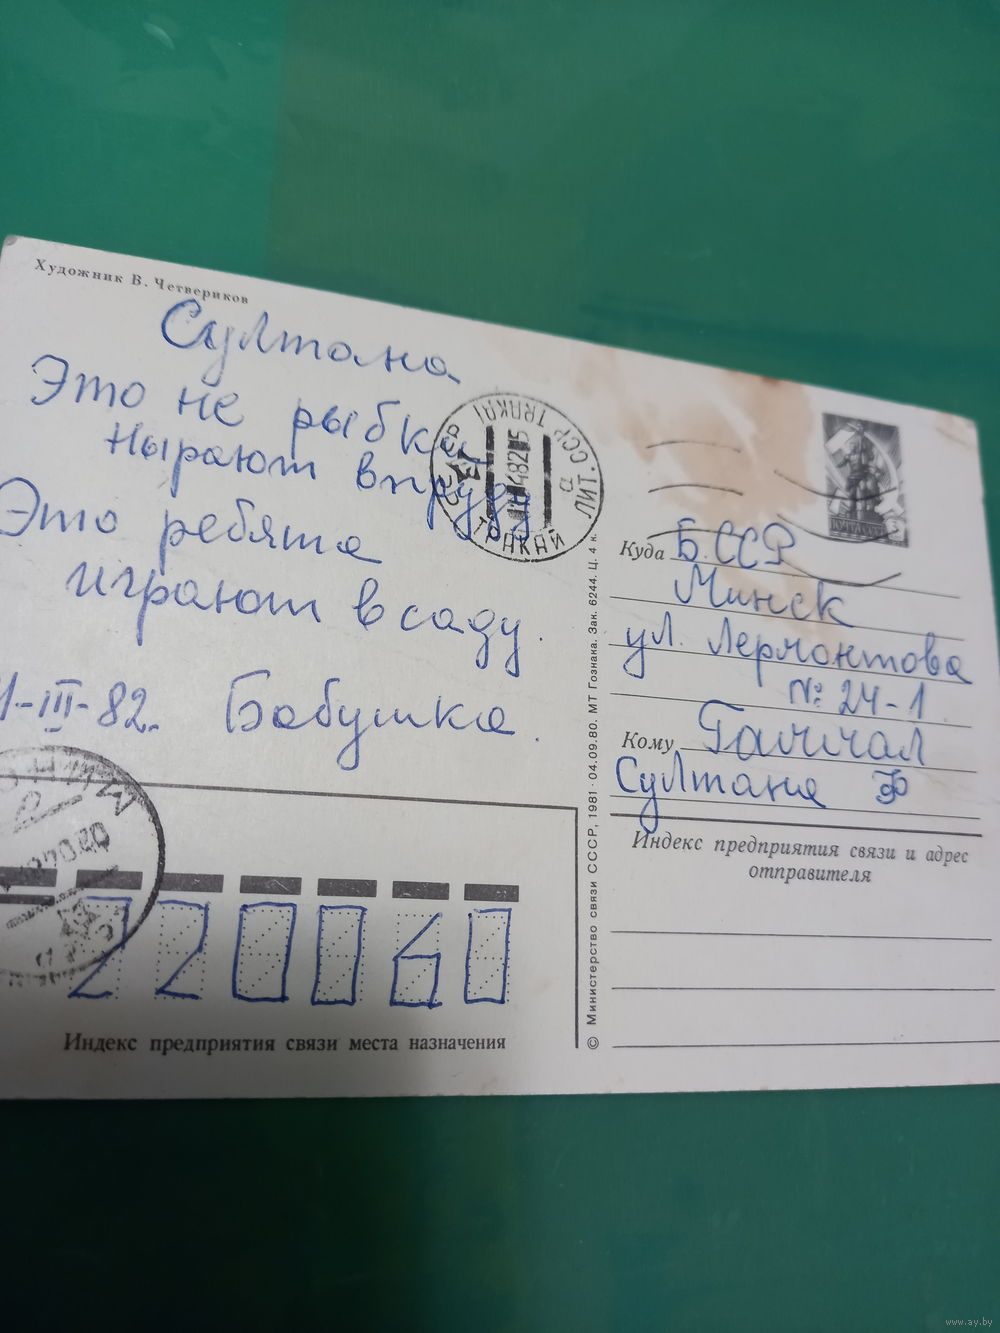 Художник В. Четвериков
Султана
Это не рыбки
Нырают в пруду
Это ребята
играют в саду.
1-III-82. Бабушка.
ТРАКАЙ
ЛИТ. ССР TRAKAI
Куда Б.ССР
Минск
ул. Лермонтова
№ 24-1.
Кому
Султане Ф
Индекс предприятия связи и адрес
отправителя
© Министерство связи СССР, 1981 · 04.09.80. МТ Гознака. Зак. 6244. Ц. 4 к.
220060
Индекс предприятия связи места назначения
www.ay.by